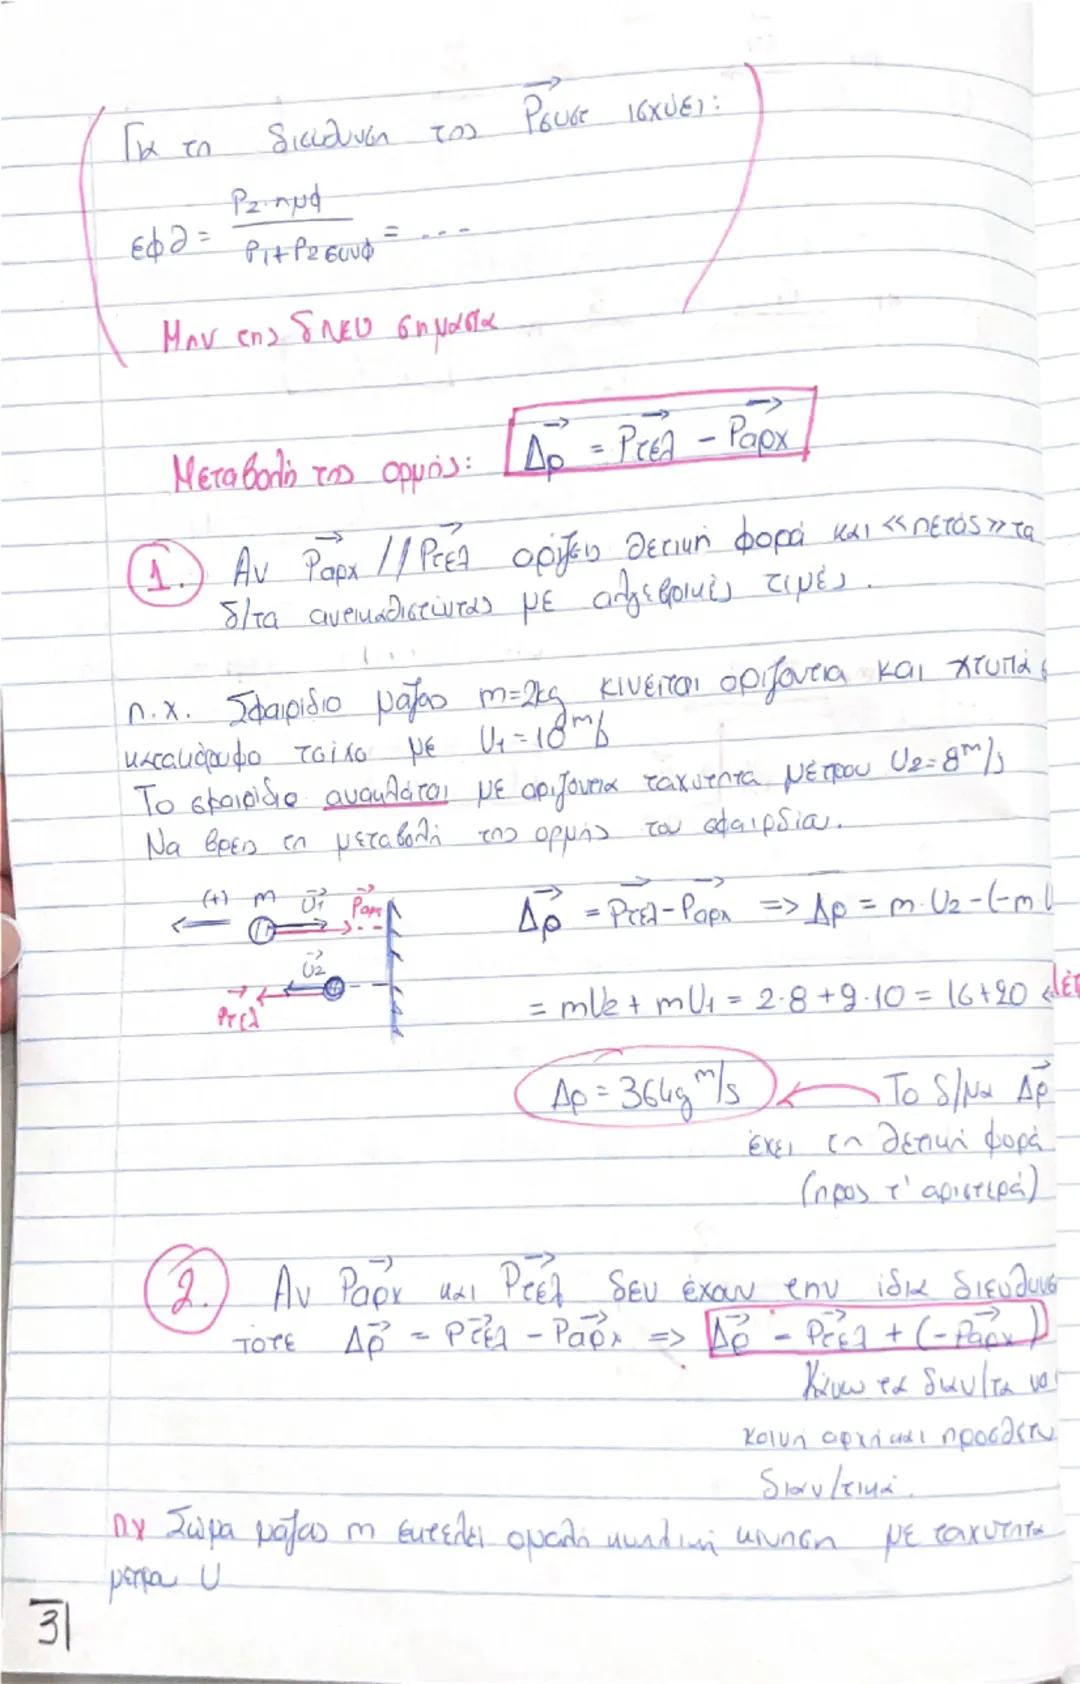 Για τη διεύθυνση του Pσυστ ισχύει:
εφθ = P2·ημφ / P1+P2συνφ = ...
Μην της δνευ σημασία
Μεταβολή της ορμής: Δp = Pτελ - Pαρχ
1. Αν Pαρχ // Pτελ ορίζεις θετική φορά και <<πετάς>> τα
δ/τα αντικαθιστώντας με αλγεβρικές τιμές.
π.χ. Σφαιρίδιο μάζας m=2kg κινείται οριζόντια και χτυπά
κατακόρυφο τοίχο με U1=10 m/s
Το σφαιρίδιο ανακλάται με οριζόντια ταχύτητα μέτρου U2=8 m/s
Να βρεις τη μεταβολή της ορμής του σφαιριδίου.
(+) m U1 Pαρχ
U2
Pτελ
Δp = Pτελ-Pαρχ => Δp = m·U2-(-mU
= mU2 + mU1 = 2·8+2·10 = 16+20
Δp = 36kg m/s
Το δ/μα Δp
έχει τη θετική φορά
(προς τ' αριστερά)
2. Αν Pαρχ και Pτελ δεν έχουν την ίδια διεύθυνσ
τότε Δp = Pτελ - Pαρχ => Δp = Pτελ + (-Pαρχ)
Κάνω τα διαν/τα να
κοινή αρχή και προσθέτω
διαν/τικά.
πχ Σώμα μάζας m εκτελεί ομαλή κυκλική κίνηση με ταχύτητα
μέτρου U
31